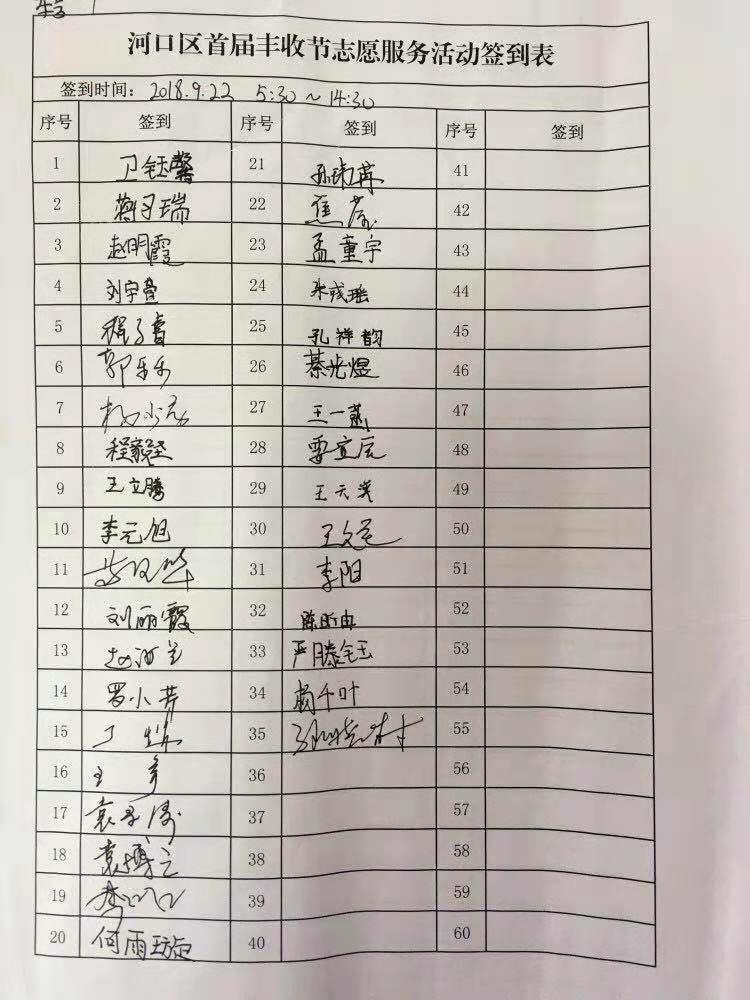 河口区首届丰收节志愿服务活动签到表
签到时间: 2018.9.22 5:30～14:30
序号 签到 序号 签到 序号 签到
1 卫钰馨 21 41
2 蒋子瑞 22 焦 43
3 赵明霞 23 孟童宇 43
4 刘宇萱 24 朱彧瑶 44
5 程子睿 25 孔祥韵 45
6 郭乐乐 26 綦光煜 46
7 杨小 27 王一菡 47
8 程毅坚 28 雷宜辰 48
9 王立腾 29 王天笑 49
10 李元旭 30 王文 50
11 31 李阳 51
12 刘丽霞 32 陈昕由 52
13 赵河兰 33 严滕钰 53
14 罗小芳 34 杨千叶 54
15 丁 35 55
16 王 36 56
17 袁 37 57
18 袁博 38 58
19 李 39 59
20 何雨璇 40 60